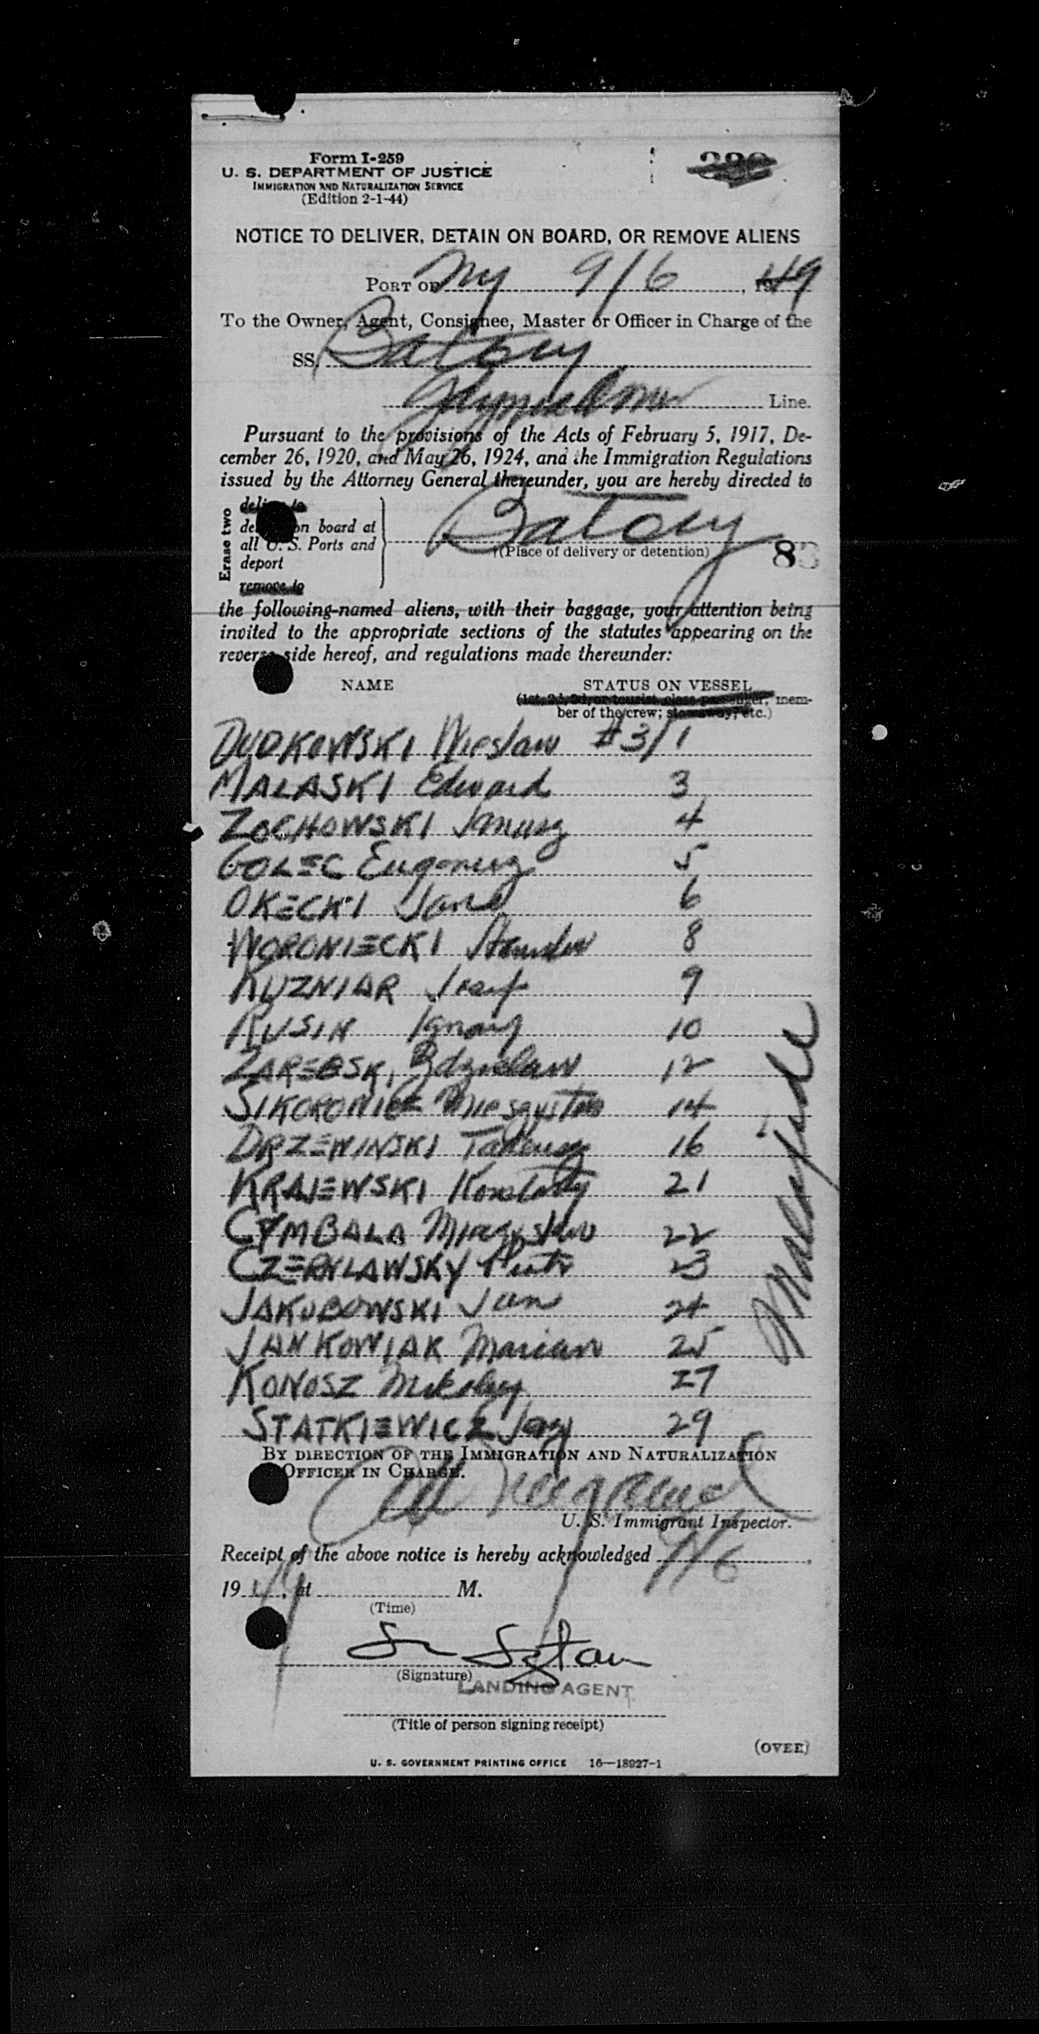 Form I-259
U. S. DEPARTMENT OF JUSTICE
IMMIGRATION AND NATURALIZATION SERVICE
(Edition 2-1-44)
NOTICE TO DELIVER, DETAIN ON BOARD, OR REMOVE ALIENS
PORT OF NY 9/6, 1949
To the Owner, Agent, Consignee, Master or Officer in Charge of the
SS. Batory
Line.
Pursuant to the provisions of the Acts of February 5, 1917, De-
cember 26, 1920, and May 26, 1924, and the Immigration Regulations
issued by the Attorney General thereunder, you are hereby directed to
Erase two
deliver to
on board at
all U. S. Ports and
deport
remove to
Batory
(Place of delivery or detention)
83
the following-named aliens, with their baggage, your attention being
invited to the appropriate sections of the statutes appearing on the
reverse side hereof, and regulations made thereunder:
NAME STATUS ON VESSEL
(1st, 2d, 3d, or tourist class passenger, mem-
ber of the crew; stowaway, etc.)
DUDKOWSKI Wieslaw #3/1
MALASKI Edward 3
ZOCHOWSKI Janusz 4
GOLEC Eugeniusz 5
OKECKI 6
WORONIECKI 8
KUZNIAR Josef 9
RUSIN Ignacy 10
ZAREBSKI Zdzislaw 12
14
DRZEWINSKI Tadeusz 16
KRAJEWSKI Konstanty 21
CYMBALA Mieczyslaw 22
Piotr 23
JAKUBOWSKI Jan 24
JANKOWIAK Marian 25
KONOSZ Mikolaj 27
STATKIEWICZ 29
Malafide
BY DIRECTION OF THE IMMIGRATION AND NATURALIZATION
OFFICER IN CHARGE.
U. S. Immigrant Inspector.
Receipt of the above notice is hereby acknowledged 9/6
1949, at M.
(Time)
(Signature)
LANDING AGENT
(Title of person signing receipt)
(OVER)
U. S. GOVERNMENT PRINTING OFFICE 16—18927-1